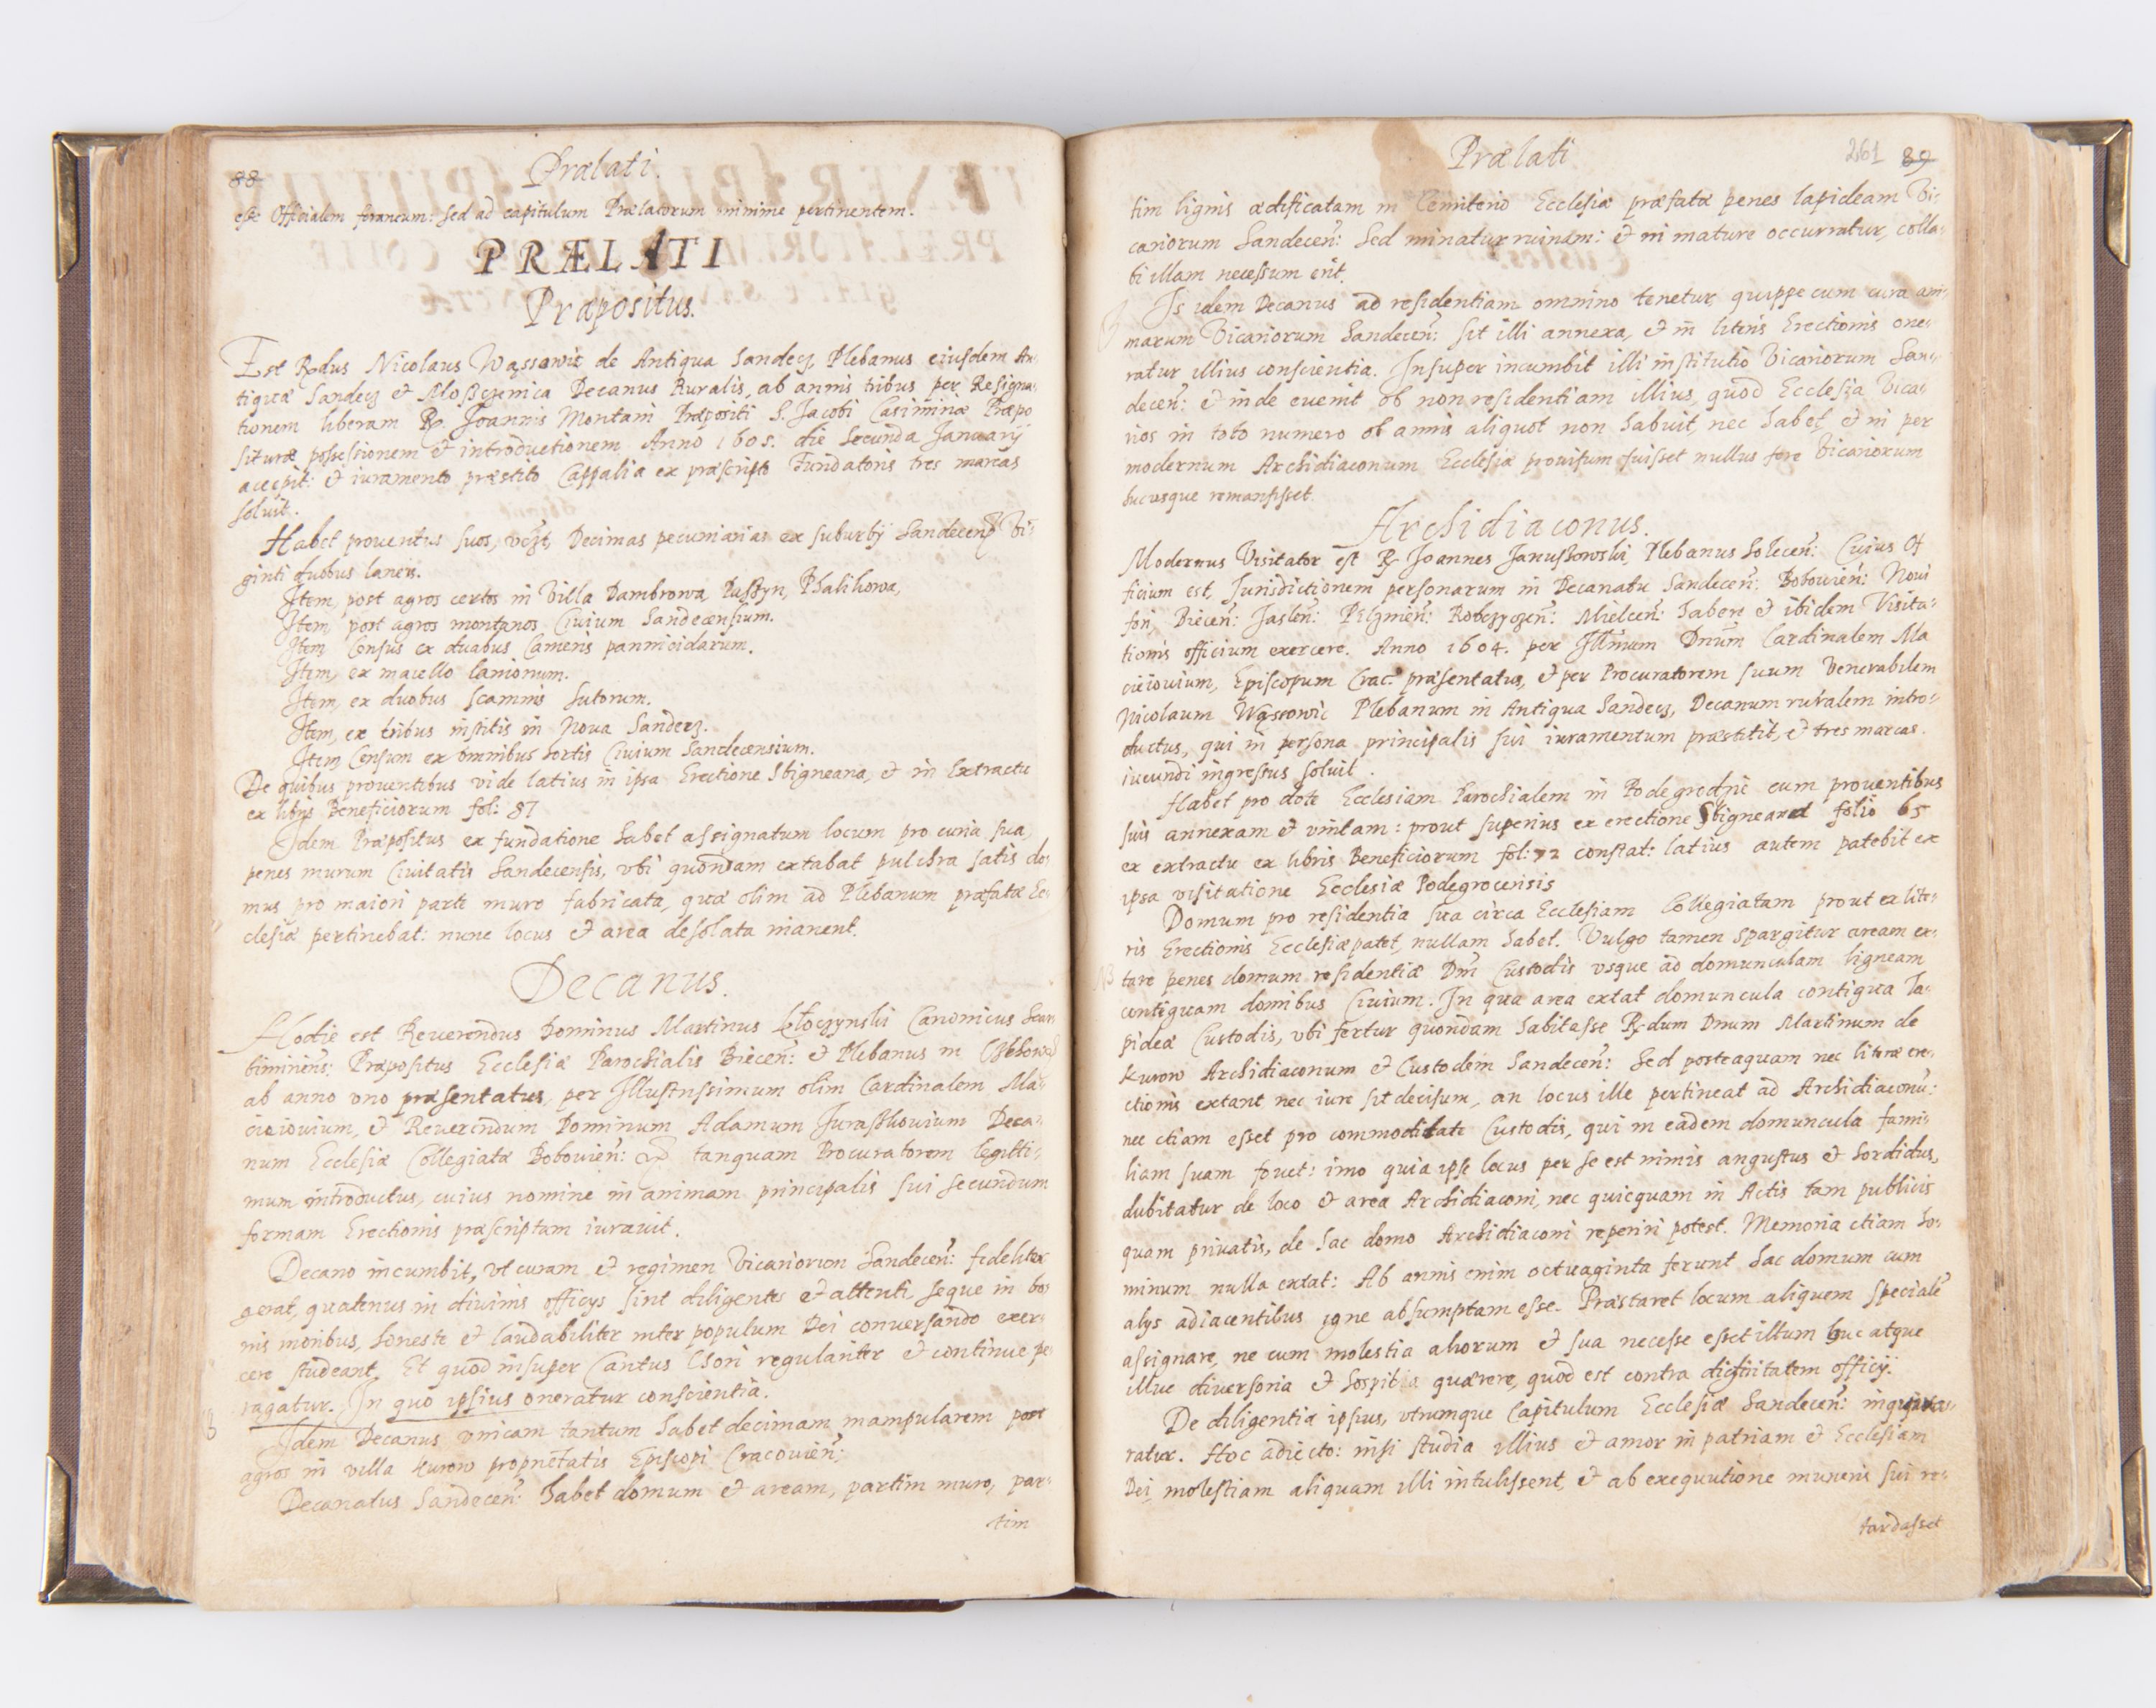 88
Prælati.
esse Officialem foraneum: sed ad capitulum Prælatorum minime pertinentem.
PRÆLATI
Præpositus.
Est Rdus Nicolaus Wąssowic de Antiqua Sandecz, Plebanus eiusdem An
tiquæ Sandecz et Moszczenica Decanus Ruralis, ab annis tribus per Resigna-
tionem liberam R. Joannis Montani Præpositi S. Jacobi Casimiriæ Præpo
situræ possessionem et introductionem Anno 1605. die secunda Januarij
accepit: et iuramento præstito Cappalia ex præscripto Fundatoris tres marcas
soluit.
Habet prouentus suos, vczt, Decimas pecuniarias ex suburbij Sandecen: Vi-
ginti duobus laneis.
Item, post agros certos in Villa Dambrowa, Paszyn, Phalihowa,
Item post agros montanos Ciuium Sandecensium.
Item Census ex duabus Cameris pannicidarum.
Item, ex macello lanionum.
Item, ex duobus scamnis sutorum.
Item, ex tribus institis in Noua Sandecz.
Item Censum ex omnibus hortis Ciuium Sandecensium.
De quibus prouentibus vide latius in ipsa Erectione Sbigneana, et in Extractu
ex libris Beneficiorum fol: 87
Idem Præpositus ex fundatione habet assignatum locum pro curia sua,
penes murum Ciuitatis Sandecensis, vbi quondam extabat pulchra satis do-
mus pro maiori parte muro fabricata, quæ olim ad Plebanum præfatæ Ec-
clesiæ pertinebat: nunc locus et area desolata manent.
Decanus.
Hodie est Reuerendus Dominus Martinus Kłoczynski Canonicus Scar
bimirien: Præpositus Ecclesiæ Parochialis Biecen: et Plebanus in
ab anno vno præsentatus, per Illustrissimum olim Cardinalem Ma-
cieiouium, et Reuerendum Dominum Adamum Juraszkouium Deca-
num Ecclesiæ Collegiatæ Bobouien: tanquam Procuratorem legitti-
mum introductus, cuius nomine in animam principalis sui secundum
formam Erectionis præscriptam iurauit.
Decano incumbit, vt curam et regimen Vicariorum Sandecen: fideliter
gerat, quatenus in diuinis officijs sint diligentes et attenti, seque in bo-
nis moribus, honeste et laudabiliter inter populum Dei conuersando exer-
cere studeant. Et quod insuper Cantus Chori regulariter et continue pe
ragatur. In quo ipsius oneratur conscientia.
Idem Decanus vnicam tantum habet decimam manipularem post
agros in villa Kurow proprietatis Episcopi Cracouien:
Decanatus Sandecen: habet domum et aream, partim muro, par-
tim
Prælati
261 89
tim lignis ædificatam in Cemiterio Ecclesiæ præfatæ penes lapideam Vi-
cariorum Sandecen: Sed minatur ruinam: et ni mature occurratur, colla-
bi illam necessum erit.
Is idem Decanus ad residentiam omnino tenetur, quippe cum cura ani-
marum Vicariorum Sandecen: sit illi annexa, et in literis Erectionis one-
ratur illius conscientia. Insuper incumbit illi institutio Vicariorum San-
decen: et inde euenit ob non residentiam illius, quod Ecclesia Vica-
rios in toto numero ab annis aliquot non habuit, nec habet, et ni per
modernum Archidiaconum Ecclesiæ prouisum fuisset nullus fere Vicariorum
hucusque remansisset.
Archidiaconus.
Modernus Visitator est R. Joannes Januszowski, Plebanus Solecen: Cuius Of
ficium est, Jurisdictionem personarum in Decanatu Sandecen: Bobouien: Noui
fori, Biecen: Jaslen: Pilznen: Robczyczen: Mielcen: habere et ibidem Visita-
tionis officium exercere. Anno 1604. per Illmum Dnum Cardinalem Ma
cieiouium, Episcopum Crac: præsentatus, et per Procuratorem suum Venerabilem
Nicolaum Wąssowic Plebanum in Antiqua Sandecz, Decanum ruralem intro-
ductus, qui in persona principalis sui iuramentum præstitit, et tres marcas
iucundi ingressus soluit.
Habet pro dote Ecclesiam Parochialem in Podegrodzie cum prouentibus
suis annexam et vnitam: prout superius ex erectione Sbigneana folio 65
ex extractu ex libris Beneficiorum fol: 72 constat: latius autem patebit ex
ipsa visitatione Ecclesiæ Podegrocensis
Domum pro residentia sua circa Ecclesiam Collegiatam prout ex lite-
ris Erectionis Ecclesiæ patet, nullam habet. Vulgo tamen spargitur aream ex-
tare penes domum residentiæ Dni Custodis vsque ad domunculam ligneam
contiguam domibus Ciuium. In qua area extat domuncula contigua la-
pideæ Custodis, vbi fertur quondam habitasse Rdum Dnum Martinum de
Kurow Archidiaconum et Custodem Sandecen: Sed posteaquam nec literæ ere-
ctionis extant nec iure sit decisum, an locus ille pertineat ad Archidiaconu:
nec etiam esset pro commoditate Custodis, qui in eadem domuncula fami-
liam suam fouet: imo quia ipse locus per se est nimis angustus et sordidus,
dubitatur de loco et area Archidiaconi, nec quicquam in Actis tam publicis
quam priuatis, de hac domo Archidiaconi reperiri potest. Memoria etiam ho-
minum nulla extat: Ab annis enim octuaginta ferunt hac domum cum
alijs adiacentibus igne absumptam esse. Præstaret locum aliquem speciale
assignare, ne cum molestia aliorum et sua necesse esset illum huc atque
illuc diuersoria et hospitia quærere, quod est contra dignitatem officij.
De diligentia ipsius, vtrumque Capitulum Ecclesiæ Sandecen:
ratur. Hoc adiecto: nisi studia illius et amor in patriam et Ecclesiam
Dei, molestiam aliquam illi intulissent, et ab exequutione muneris sui re-
tardasset